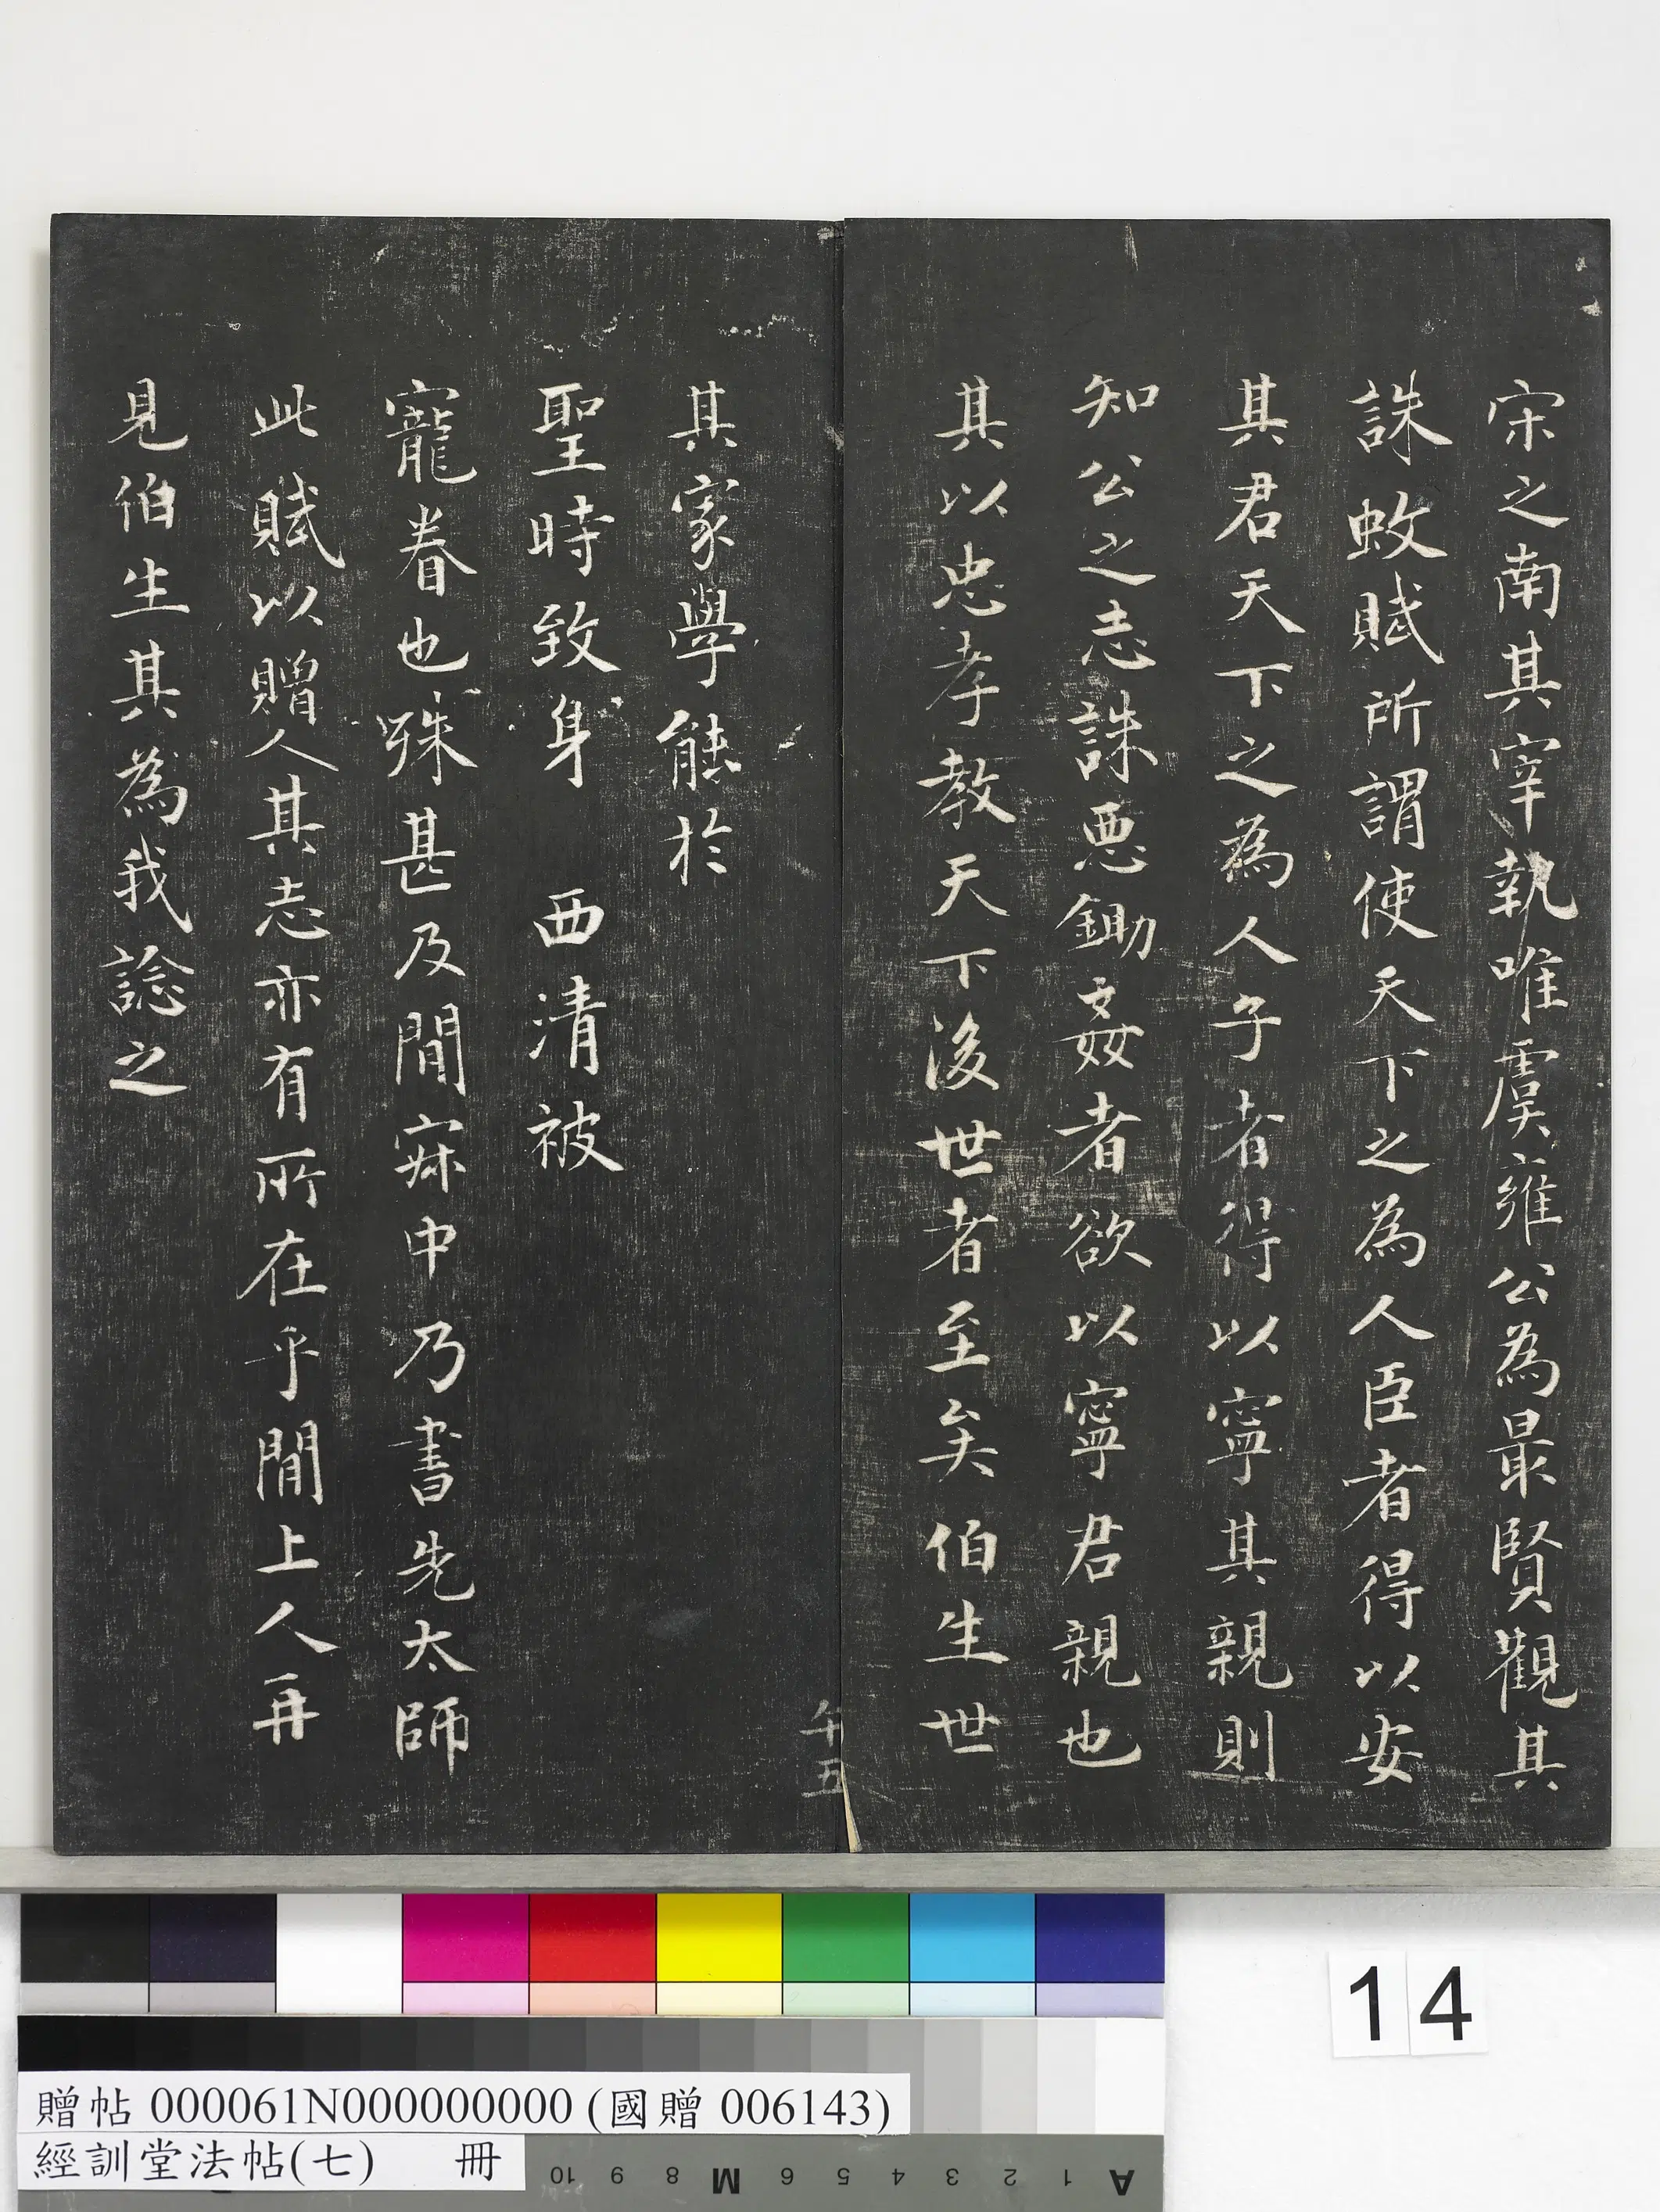 宋之南其宰執唯虞雍公為最賢觀其
誅蚊賦所謂使天下之為人臣者得以安
其君天下之為人子者得以寧其親則
知公之志誅惡鋤姦者欲以寧君親也
其以忠孝教天下後世者至矣伯生世
其家學能於
聖時致身 西清被
寵眷也殊甚及閒寂中乃書先太師
此賦以贈人其志亦有所在乎閒上人再
見伯生其為我諗之
午五
14
贈帖 000061N000000000 (國贈 006143)
經訓堂法帖(七) 冊
10 9 8 M 6 5 4 3 2 1 A